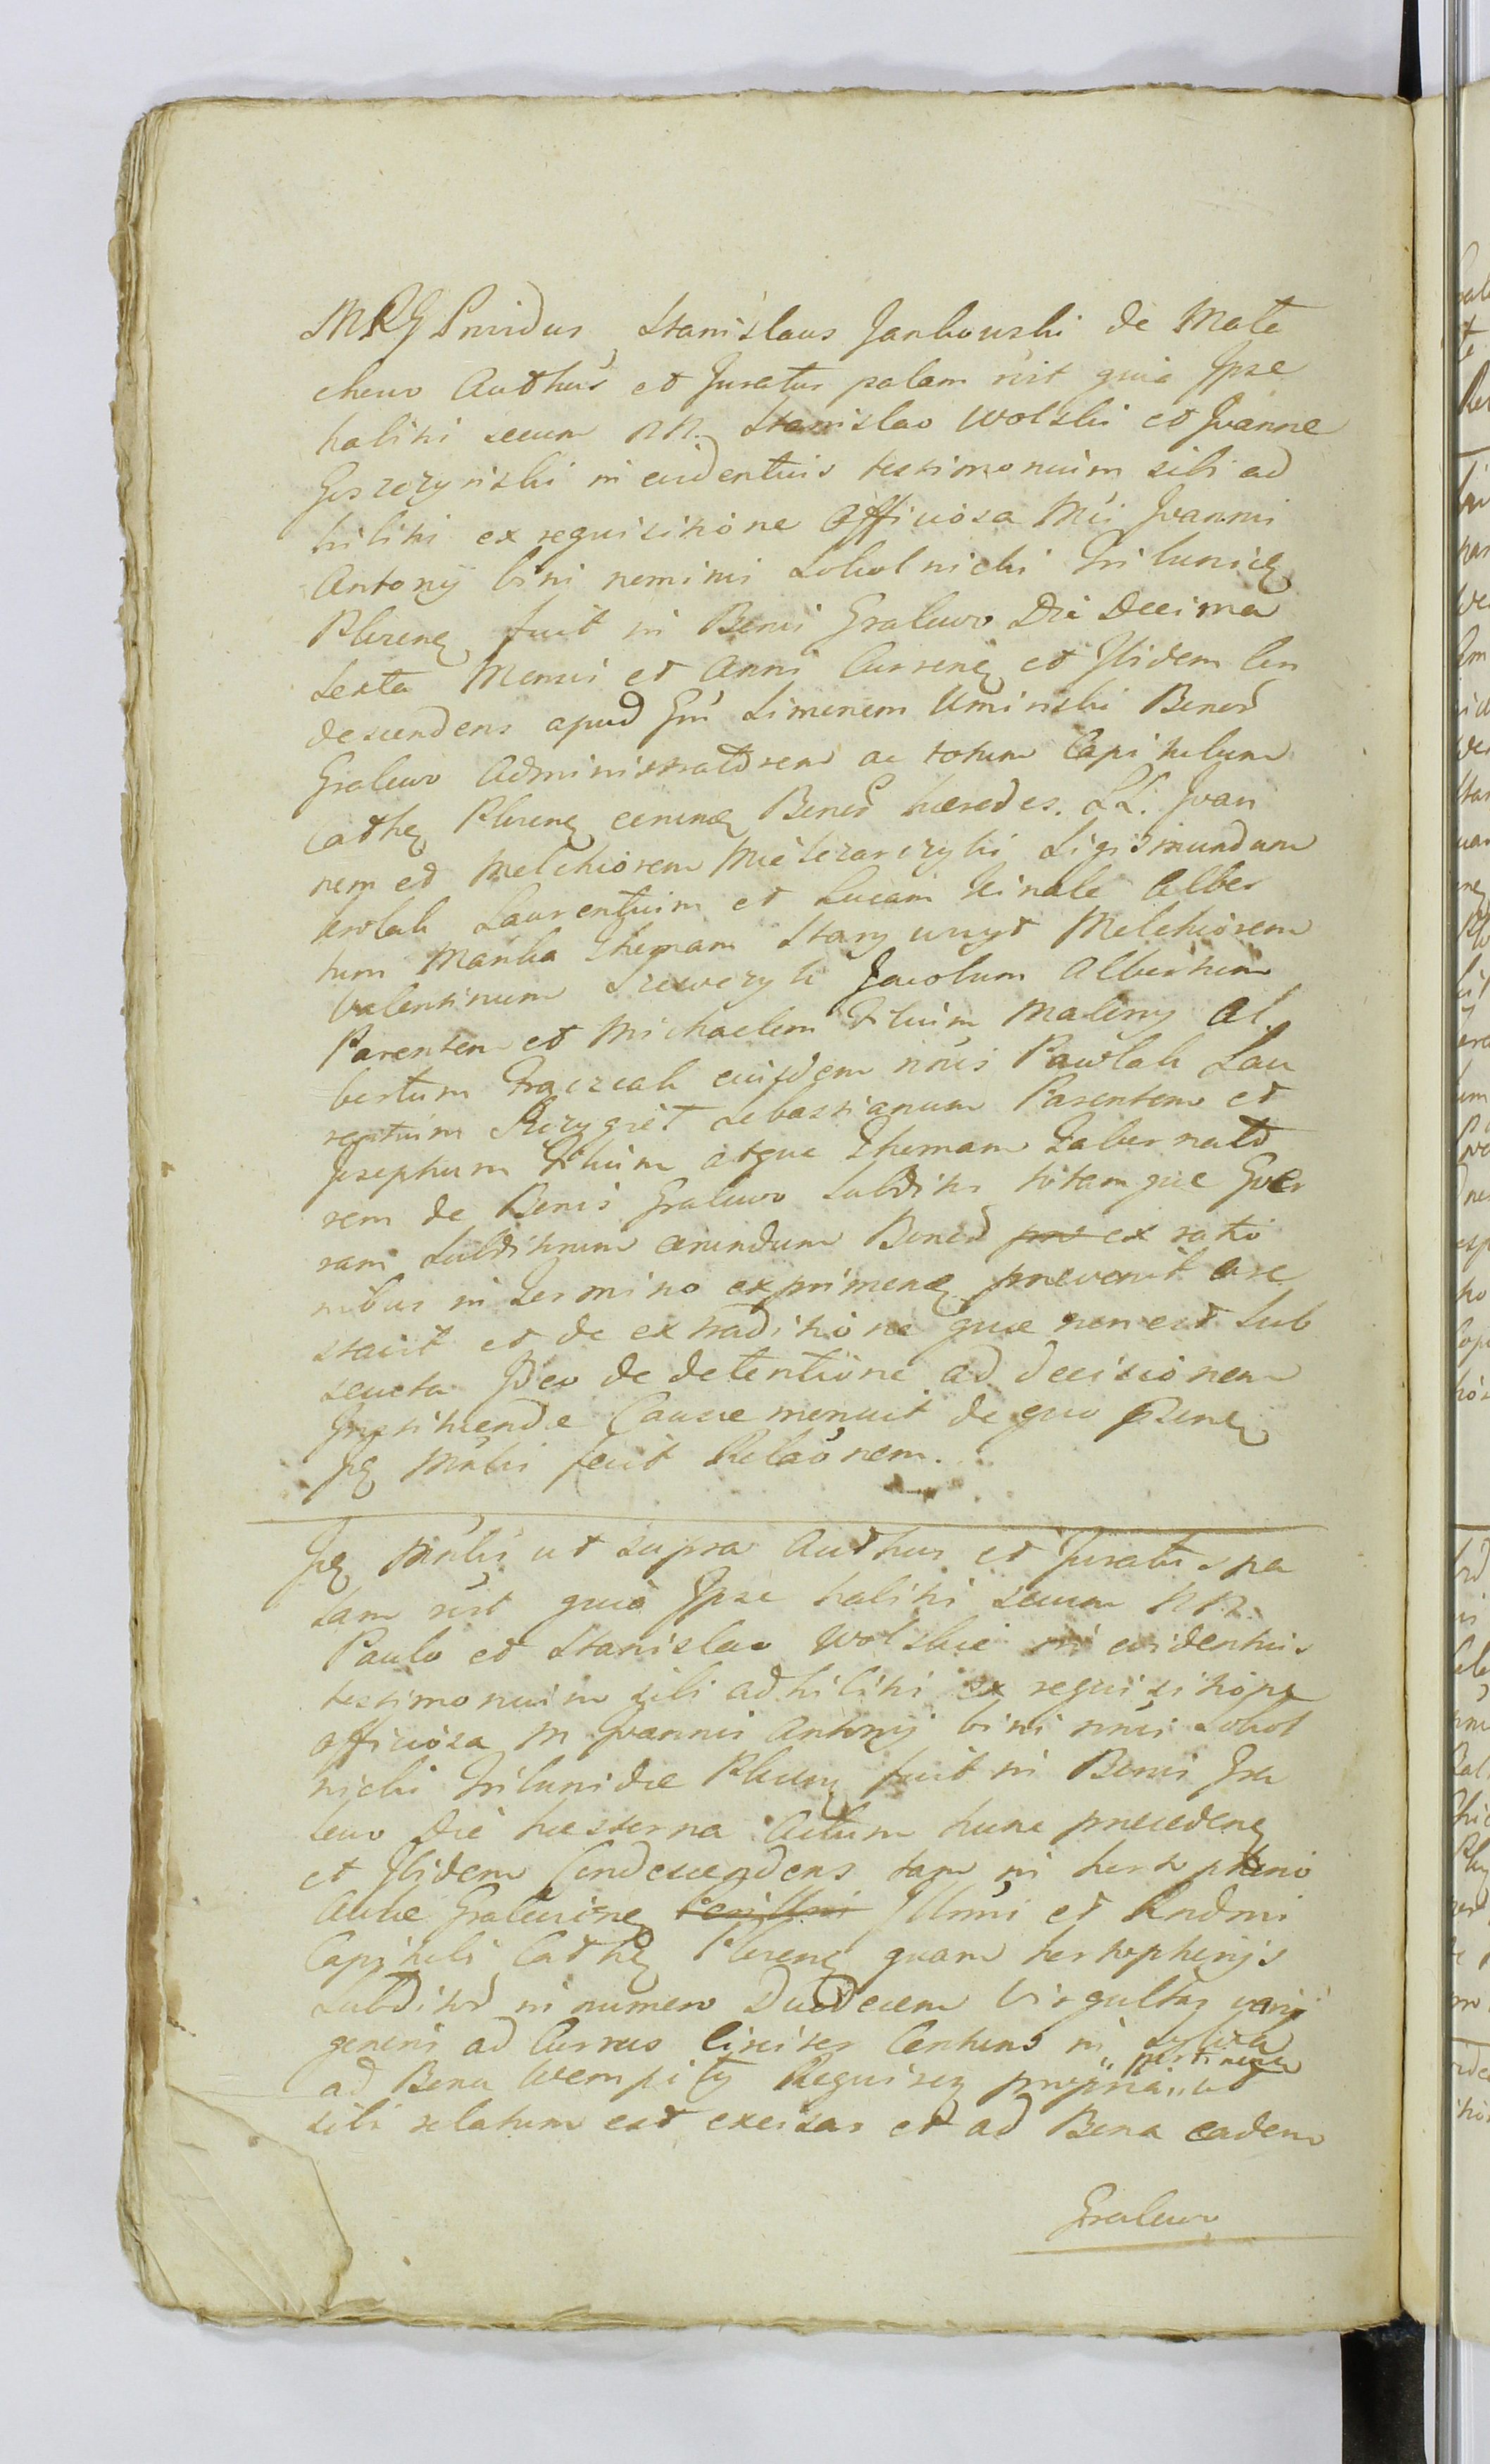 MRG Providus Stanislaus Jankowski de Mate
chewo Authus et Juratus palam rcit quia Ipse
habitis secum nn. Stanislao Wolski et Joanne
Goszczynski in evidentius testimonium sibi ad
hibitis ex requisitione officiosa Mci Joannis
Antonij bini nominis Sokolnicki Tribunidę
Plocenę fuit in Bonis Gralewo Die Decima
Sexta Mensis et Anni Currenę et Ibidem Con
descendens apud Gm Simonem Uminski Bonor
Gralewo Administratorem ac totum Capitulum
Cathę Plocenę eorundę Bonor haeredes. LL. Joan
nem et Melchiorem Sigismundum
Krolak Laurentium et Lucam Kinale Alber
tum Manka Thomam Stary woyt Melchiorem
Valentinum Szewczyk Jacobum Albertum
Parentem et Michaelem Filium Maliny Al
bertum Fraczak eiusdem nnis Pawlak Lau
rentium Sebastianum Parentem et
Josephum Filium atque Thomam Tabernato
rem de Bonis Gralewo Subditos totamque Gro
ram Subditorum eorundum Bonor pro ex ratio
nibus in Termino exprimenę praevenit are
stavit et de extraditione quae non est Sub
secuta Ideo de detentione ad decisionem
Instituendae Causae monuit de quo Praenę
Ię Mnlis fecit Relaonem.
Ię Mnlis ut supra Authus et Juratus pa
lam rcit quia Ipse habitis secum nn.
Paulo et Stanislao Wolskie in evidentius
testimonium sibi adhibitis ex requisitione
officiosa M Joannis Antonij bini nnis Sokol
nicki Tribunidae Plocenę fuit in Bonis Gra
lewo Die hesterna Actum hunc praecedenę
et Ibidem Condescendens tam in horto
Aulae Gralewienę Illmi et Rndmi
Capituli Cathę Plocenę quam
Subditor in numero Duodecem Virgultas varij
generis ad Currus Circiter Centum in sylva
ad Bona Wempiły Requirenę propria „ pertinenę „ ut
sibi relatum est excisas et ad Bona eadem
Gralewo